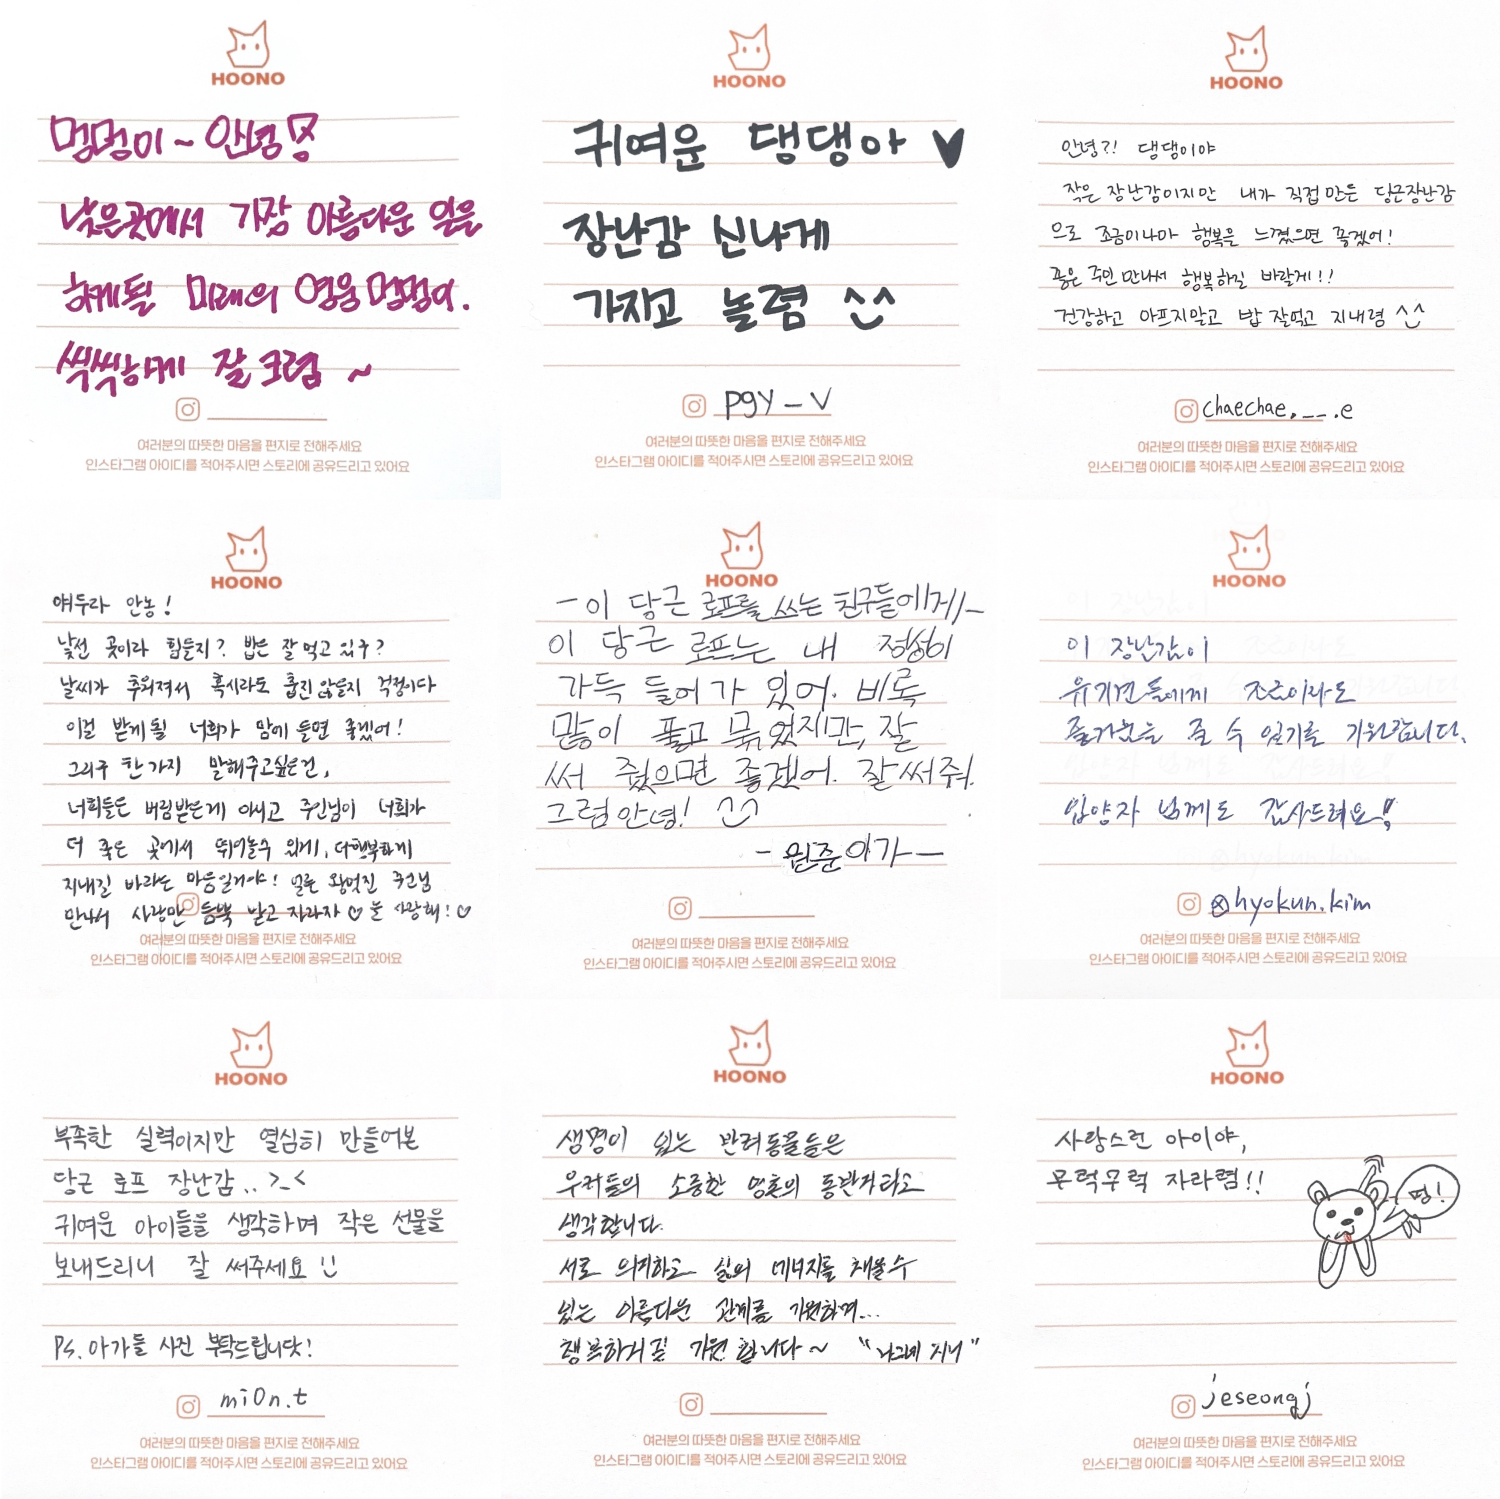 HOONO
멍멍이~ 안녕
낮은곳에서 가장 아름다운 일을
하게될 미래의 영웅 멍멍이.
씩씩하게 잘 크렴 ~
여러분의 따뜻한 마음을 편지로 전해주세요
인스타그램 아이디를 적어주시면 스토리에 공유드리고 있어요
HOONO
귀여운 댕댕아 ♥
장난감 신나게
가지고 놀렴 ^^
pgy_v
여러분의 따뜻한 마음을 편지로 전해주세요
인스타그램 아이디를 적어주시면 스토리에 공유드리고 있어요
HOONO
안녕?! 댕댕이야
작은 장난감이지만 내가 직접 만든 당근장난감
으로 조금이나마 행복을 느꼈으면 좋겠어!
좋은 주인 만나서 행복하길 바랄게!!
건강하고 아프지말고 밥 잘먹고 지내렴 ^^
chaechae.__.e
여러분의 따뜻한 마음을 편지로 전해주세요
인스타그램 아이디를 적어주시면 스토리에 공유드리고 있어요
HOONO
얘두라 안농!
낯선 곳이라 힘들지? 밥은 잘 먹고 있구?
날씨가 추워져서 혹시라도 춥진 않을지 걱정이다
이걸 받게될 너희가 맘에 들면 좋겠어!
그리구 한가지 말해주고싶은건,
너희들은 버림받은게 아니고 주인님이 너희가
더 좋은 곳에서 뛰어놀수 있게, 더행복하게
지내길 바라는 마음일거야! 얼른 왕멋진 주인님
만나서 사랑만 듬뿍 받고 자라자 ♡ 늘 사랑해!♡
여러분의 따뜻한 마음을 편지로 전해주세요
인스타그램 아이디를 적어주시면 스토리에 공유드리고 있어요
HOONO
-이 당근 로프를 쓰는 친구들에게-
이 당근 로프는 내 정성이
가득 들어가 있어. 비록
많이 풀고 묶었지만, 잘
써 줬으면 좋겠어. 잘써줘.
그럼 안녕! ^^
- 원준아가 -
여러분의 따뜻한 마음을 편지로 전해주세요
인스타그램 아이디를 적어주시면 스토리에 공유드리고 있어요
HOONO
이 장난감이
유기견들에게 조금이라도
즐거움을 줄 수 있기를 기원합니다.
입양자 님께도 감사드려요!
@hyokun.kim
여러분의 따뜻한 마음을 편지로 전해주세요
인스타그램 아이디를 적어주시면 스토리에 공유드리고 있어요
HOONO
부족한 실력이지만 열심히 만들어본
당근 로프 장난감.. >_<
귀여운 아이들을 생각하며 작은 선물을
보내드리니 잘 써주세요 :)
Ps. 아가들 사진 부탁드립니닷!
mi0n.t
여러분의 따뜻한 마음을 편지로 전해주세요
인스타그램 아이디를 적어주시면 스토리에 공유드리고 있어요
HOONO
생명이 있는 반려동물들은
우리들의 소중한 영혼의 동반자라고
생각합니다.
서로 의지하고 삶의 에너지를 채울수
있는 아름다운 관계를 기원하며...
행복하시길 기원 합니다~
여러분의 따뜻한 마음을 편지로 전해주세요
인스타그램 아이디를 적어주시면 스토리에 공유드리고 있어요
HOONO
사랑스런 아이야,
무럭무럭 자라렴!!
멍!
jeseongj
여러분의 따뜻한 마음을 편지로 전해주세요
인스타그램 아이디를 적어주시면 스토리에 공유드리고 있어요